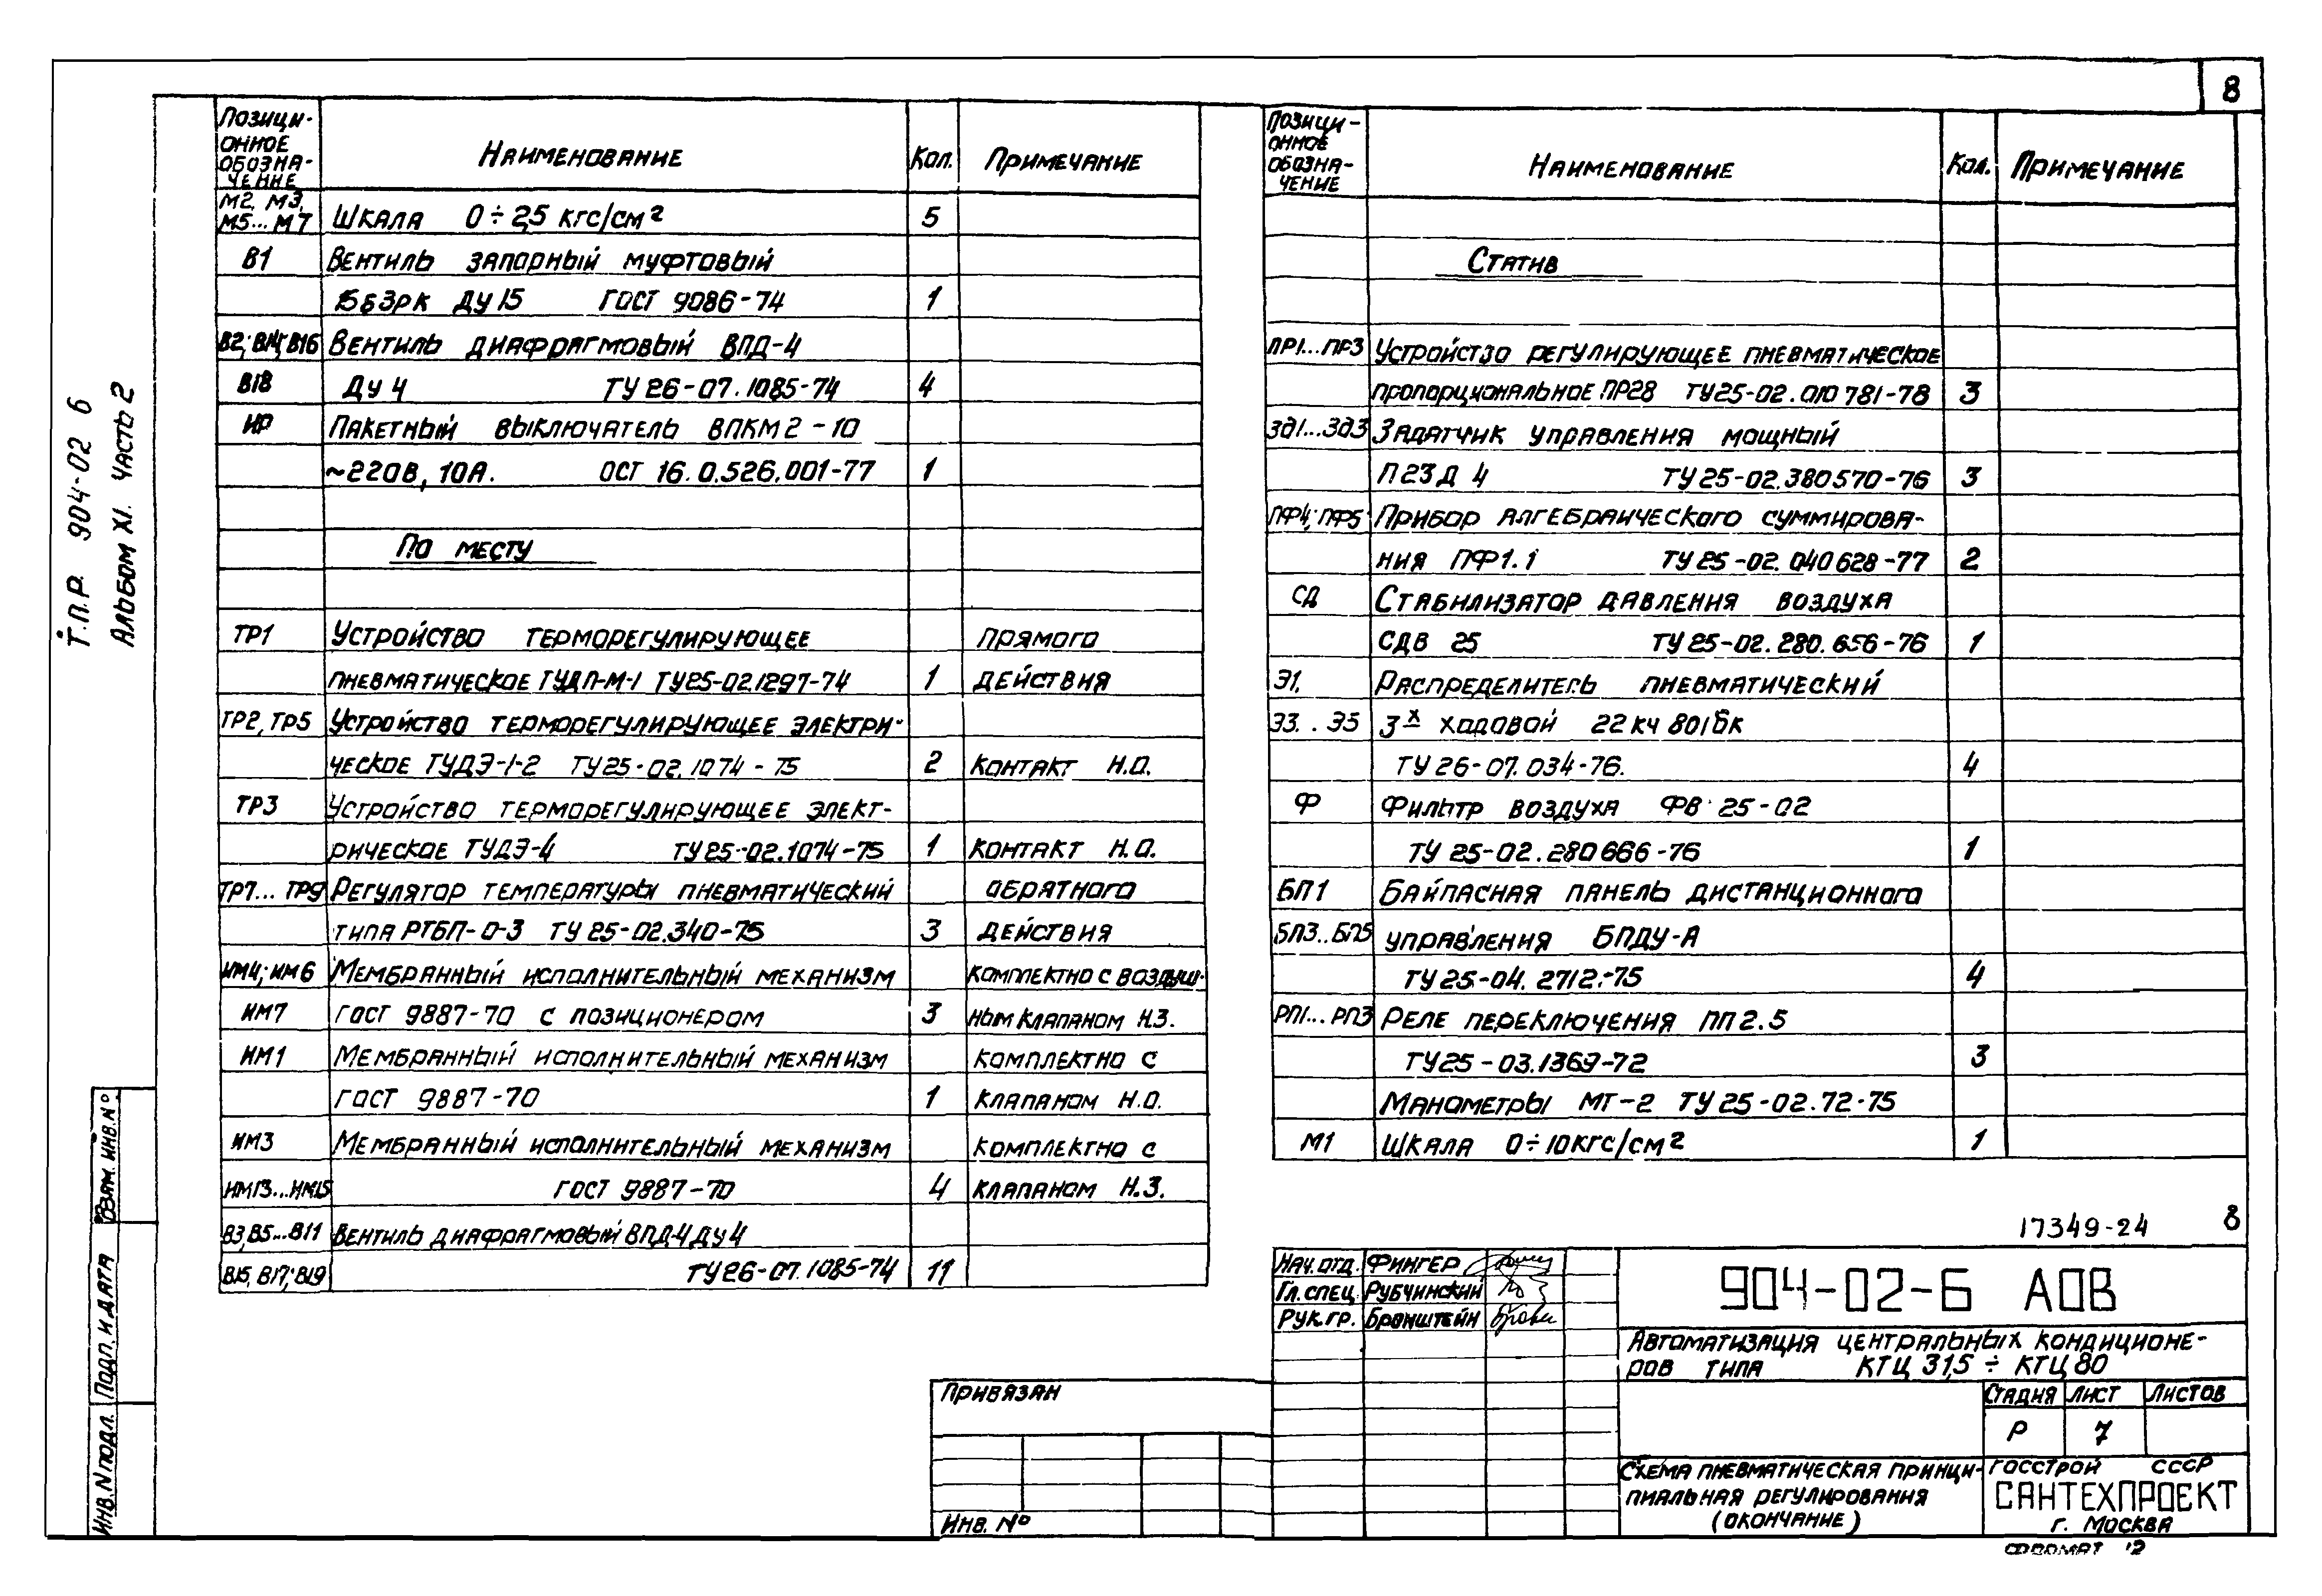 8
Т.П.Р. 904-02 б
Альбом XI. Часть 2
Позици-
онное
обозна-
чение
Наименование
Кол.
Примечание
М2, М3,
М5...М7
Шкала 0÷2,5 кгс/см²
5
В1
Вентиль запорный муфтовый
15Б3рк Ду 15 ГОСТ 9086-74
1
В2; В14; В16
Вентиль диафрагмовый ВПД-4
В18
Ду 4 ТУ 26-07.1085-74
4
ИР
Пакетный выключатель ВПКМ2-10
~220В, 10А. ОСТ 16.0.526.001-77
1
По месту
ТР1
Устройство терморегулирующее
прямого
пневматическое ТУДП-М-1 ТУ25-02.1297-74
1
действия
ТР2, ТР5
Устройство терморегулирующее электри-
ческое ТУДЭ-1-2 ТУ25-02.1074-75
2
контакт Н.О.
ТР3
Устройство терморегулирующее элект-
рическое ТУДЭ-4 ТУ25-02.1074-75
1
контакт Н.О.
ТР7...ТР9
Регулятор температуры пневматический
обратного
типа РТБП-0-3 ТУ 25-02.340-75
3
действия
ИМ4; ИМ6
Мембранный исполнительный механизм
комплектно с воздуш-
ИМ7
ГОСТ 9887-70 с позиционером
3
ным клапаном Н.З.
ИМ1
Мембранный исполнительный механизм
комплектно с
ГОСТ 9887-70
1
клапаном Н.О.
ИМ3
Мембранный исполнительный механизм
комплектно с
ИМ13...ИМ15
ГОСТ 9887-70
4
клапаном Н.З.
В3, В5...В11
Вентиль диафрагмовый ВПД-4 Ду 4
В15, В17; В19
ТУ26-07.1085-74
11
Позици-
онное
обозна-
чение
Наименование
Кол.
Примечание
Статив
ПР1...ПР3
Устройство регулирующее пневматическое
пропорциональное ПР28 ТУ25-02.010781-78
3
ЗД1...ЗД3
Задатчик управления мощный
П23Д 4 ТУ 25-02.380570-76
3
ПФ4; ПФ5
Прибор алгебраического суммирова-
ния ПФ1.1 ТУ 25-02.040628-77
2
СД
Стабилизатор давления воздуха
СДВ 25 ТУ 25-02.280.656-76
1
Э1,
Распределитель пневматический
Э3...Э5
3х ходовой 22кч 801бк
ТУ 26-07.034-76.
4
Ф
Фильтр воздуха ФВ 25-02
ТУ 25-02.280666-76
1
БП1
Байпасная панель дистанционного
БП3...БП5
управления БПДУ-А
ТУ25-04.2712-75
4
РП1...РП3
Реле переключения ПП2.5
ТУ25-03.1369-72
3
Манометры МТ-2 ТУ25-02.72-75
М1
Шкала 0÷10кгс/см²
1
17349-24
8
Нач.отд. Фингер
Гл.спец Рубчинский
Рук.гр. Бронштейн
904-02-Б АОВ
Автоматизация центральных кондиционе-
ров типа КТЦ 31,5÷КТЦ 80
Стадия Лист Листов
Р 7
Схема пневматическая принци-
пиальная регулирования
(окончание)
Госстрой СССР
САНТЕХПРОЕКТ
г. Москва
Формат 12
Привязан
Инв. №
Взам. инв. №
Подп. и дата
Инв. N подл.